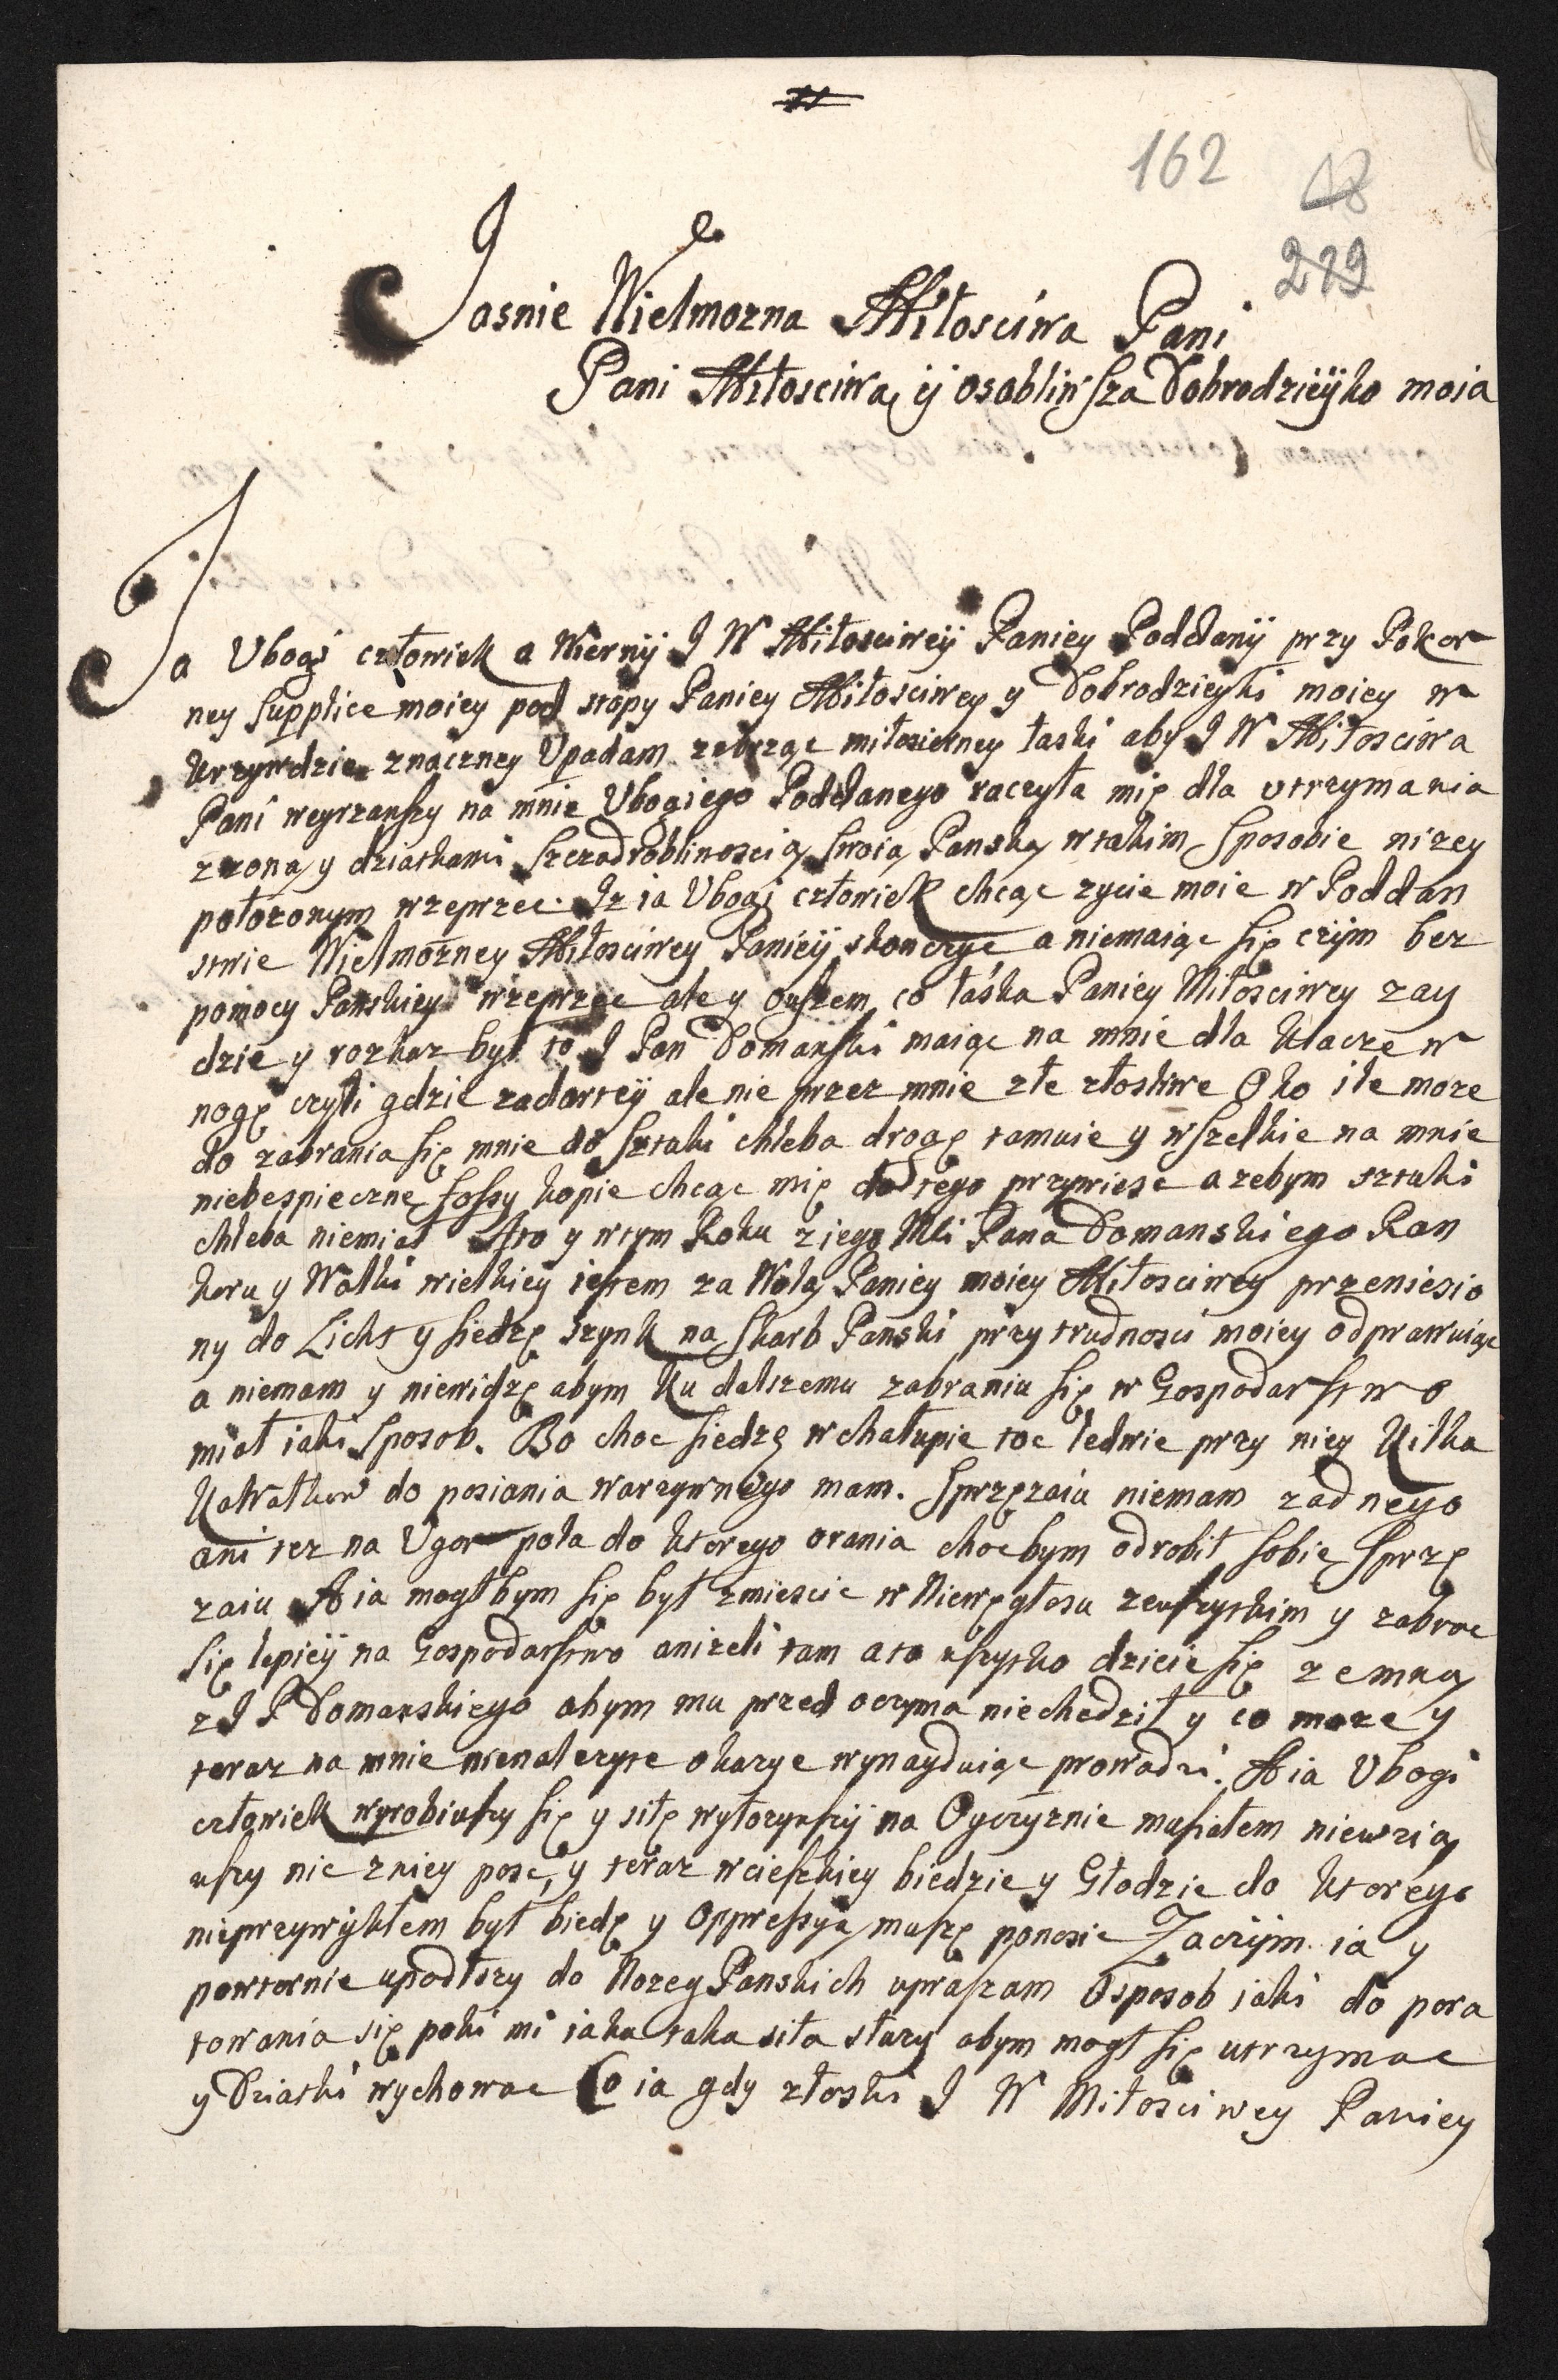 162
18
229
Jasnie Wielmozna Miłosciwa Pani
Pani Miłosciwa ÿ osobliwsza Dobrodzieÿko moia
Ja Vbogi człowiek a Wiernÿ J W Miłosciweÿ Paniey Poddanÿ przy Pokor
ney supplice moiey pod stopy Paniey Miłosciwey y Dobrodzieyki moiey w
krzywdzie znaczney Vpadam zebrząc miłosierney łaski aby J W Miłosciwa
Pani weyrzawszy na mnie Vbogiego Poddanego raczyła mię dla utrzymania
z zoną y dziatkami szczodrobliwoscią swoią Panską w takim sposobie nizey
połozonym wzeprzec. Iz ia Vbogi człowiek chcąc zycie moie w Poddan
stwie Wielmozney Miłosciwey Panieÿ skonczyc a niemaiąc się czÿm bez
pomocy Panskiey wzeprzec ale y owszem co łaska Paniey Miłosciwey zay
dzie y rozkaz był to J Pan Domanski maiąc na mnie dla klacze w
nogę czyli gdzie zadarteÿ ale nie przez mnie złe złosliwe Oko ile moze
do zabrania się mnie do sztuki chleba drogę tamuie y wszelkie na mnie
niebespieczne fossy kopie chcąc mię do tego przywiesc azebym sztuki
chleba niemiał Ato y wtym Roku z iego Mci Pana Domanskiego Ran
koru y Walki wielkiey iestem za Wolą Paniey moiey Miłosciwey przeniesio
ny do Licht y siedzę szynk na skarb Panski przy trudnosci moiey odprawuiąc
a niemam y niewidzę abym ku dalszemu zabraniu się w Gospodarstwo
miał iaki sposob. Bo choc siedzę w chałupie toc ledwie przy niey kilka
kawałkow do posiania warzywnego mam. Sprzęzaiu niemam zadnego
ani tez na Vgor pola do ktorego orania chocbym odrobił sobie sprzę
zaiu A ia mogłbym się był zmiescic w Niewęgłosu zewszystkim y zabrac
się lepieÿ na Gospodarstwo anizeli tam a to wszystko dzieie się zemną
z J P Domanskiego abym mu przed oczyma niechodził y co moze y
teraz na mnie nienalezyte okazye wynayduiąc prowadzi. A ia Vbogi
człowiek wyrobiwszy się y siłę wyłozywszÿ na Oyczyznie musiałem niewzią
wszy nic zniey posc, y teraz wcieszkiey biedzie y Głodzie do ktorego
nieprzywÿkłem był biedę y Oppressyą muszę ponosic Zaczÿm ia y
powtornie upadłszy do Nozeg Panskich upraszam Osposob iaki do pora
towania się poki mi iaka taka siła słuzy abym mogł się utrzymac
y Dziatki wychowac Co ia gdy złoski J W Miłosciwey Paniey